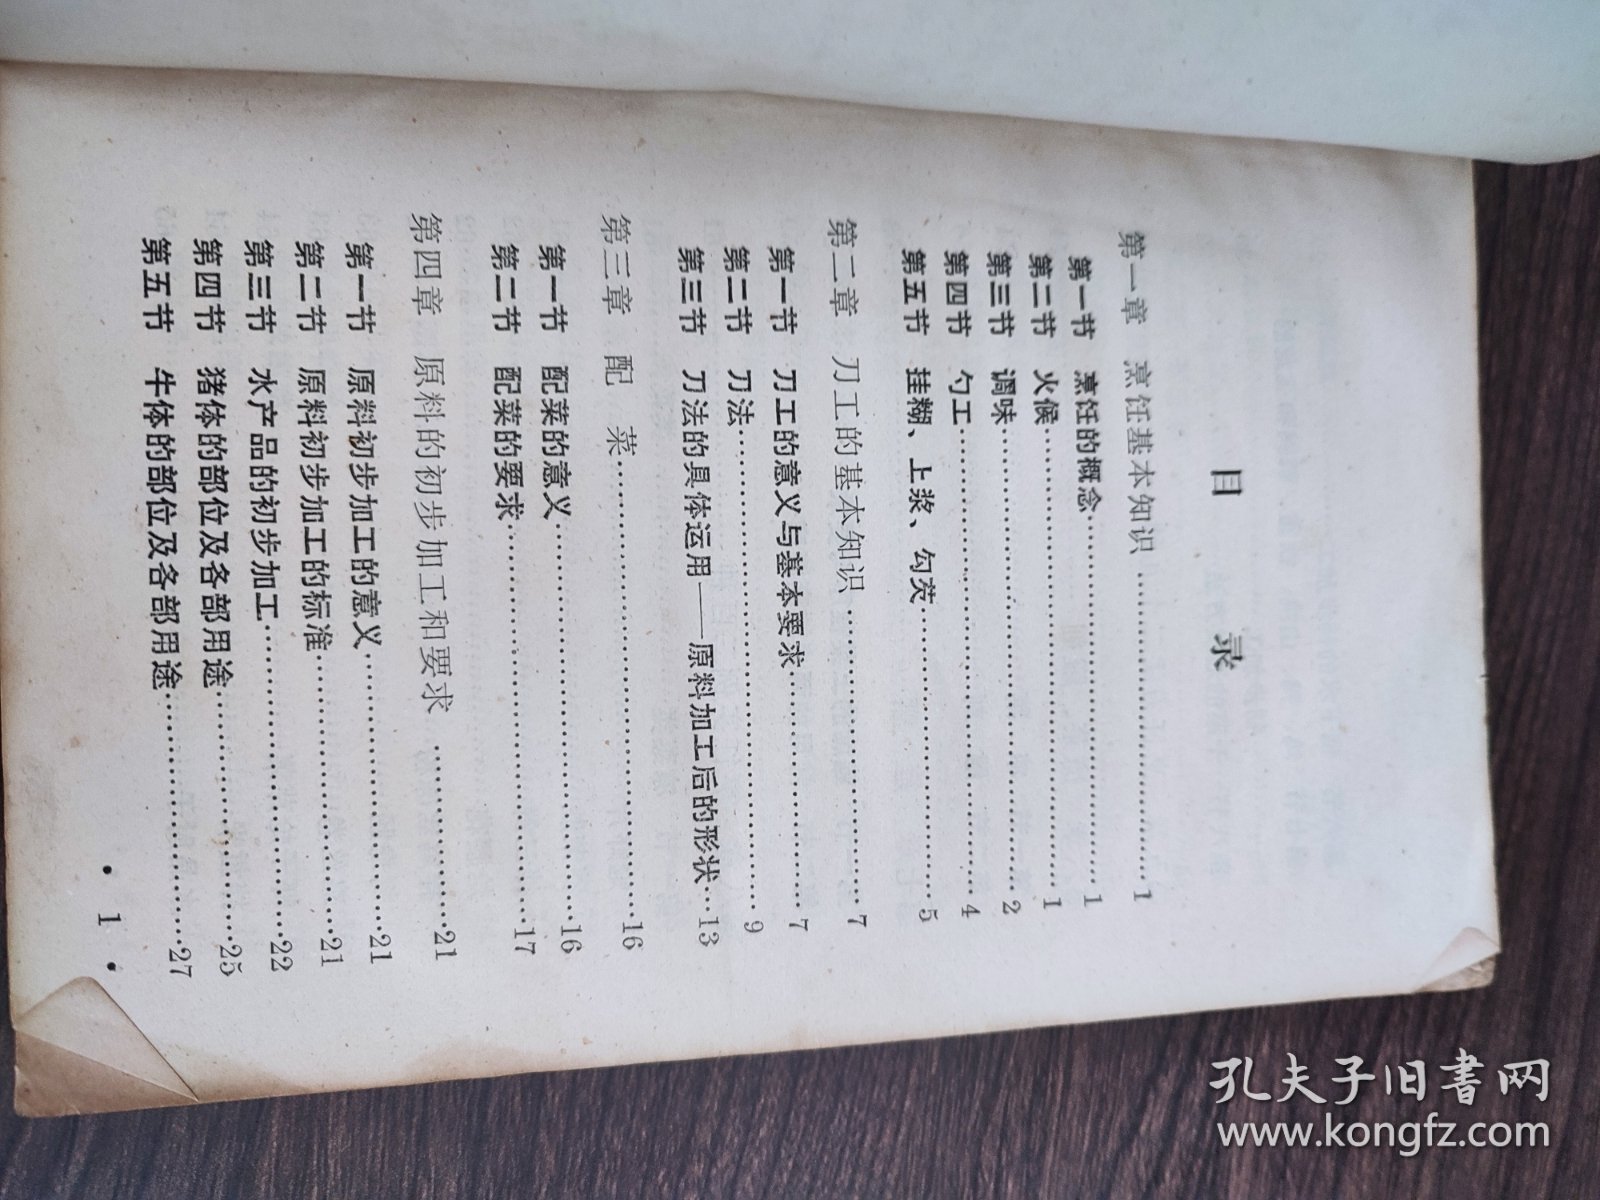 目　录
第一章　烹饪基本知识…………………………1
第一节　烹饪的概念…………………………1
第二节　火候…………………………1
第三节　调味…………………………2
第四节　勺工…………………………4
第五节　挂糊、上浆、勾芡…………………………5
第二章　刀工的基本知识…………………………7
第一节　刀工的意义与基本要求…………………………7
第二节　刀法…………………………9
第三节　刀法的具体运用——原料加工后的形状…13
第三章　配　菜…………………………16
第一节　配菜的意义…………………………16
第二节　配菜的要求…………………………17
第四章　原料的初步加工和要求…………………………21
第一节　原料初步加工的意义…………………………21
第二节　原料初步加工的标准…………………………21
第三节　水产品的初步加工…………………………22
第四节　猪体的部位及各部用途…………………………25
第五节　牛体的部位及各部用途…………………………27
• 1 •
孔夫子旧书网
www.kongfz.com